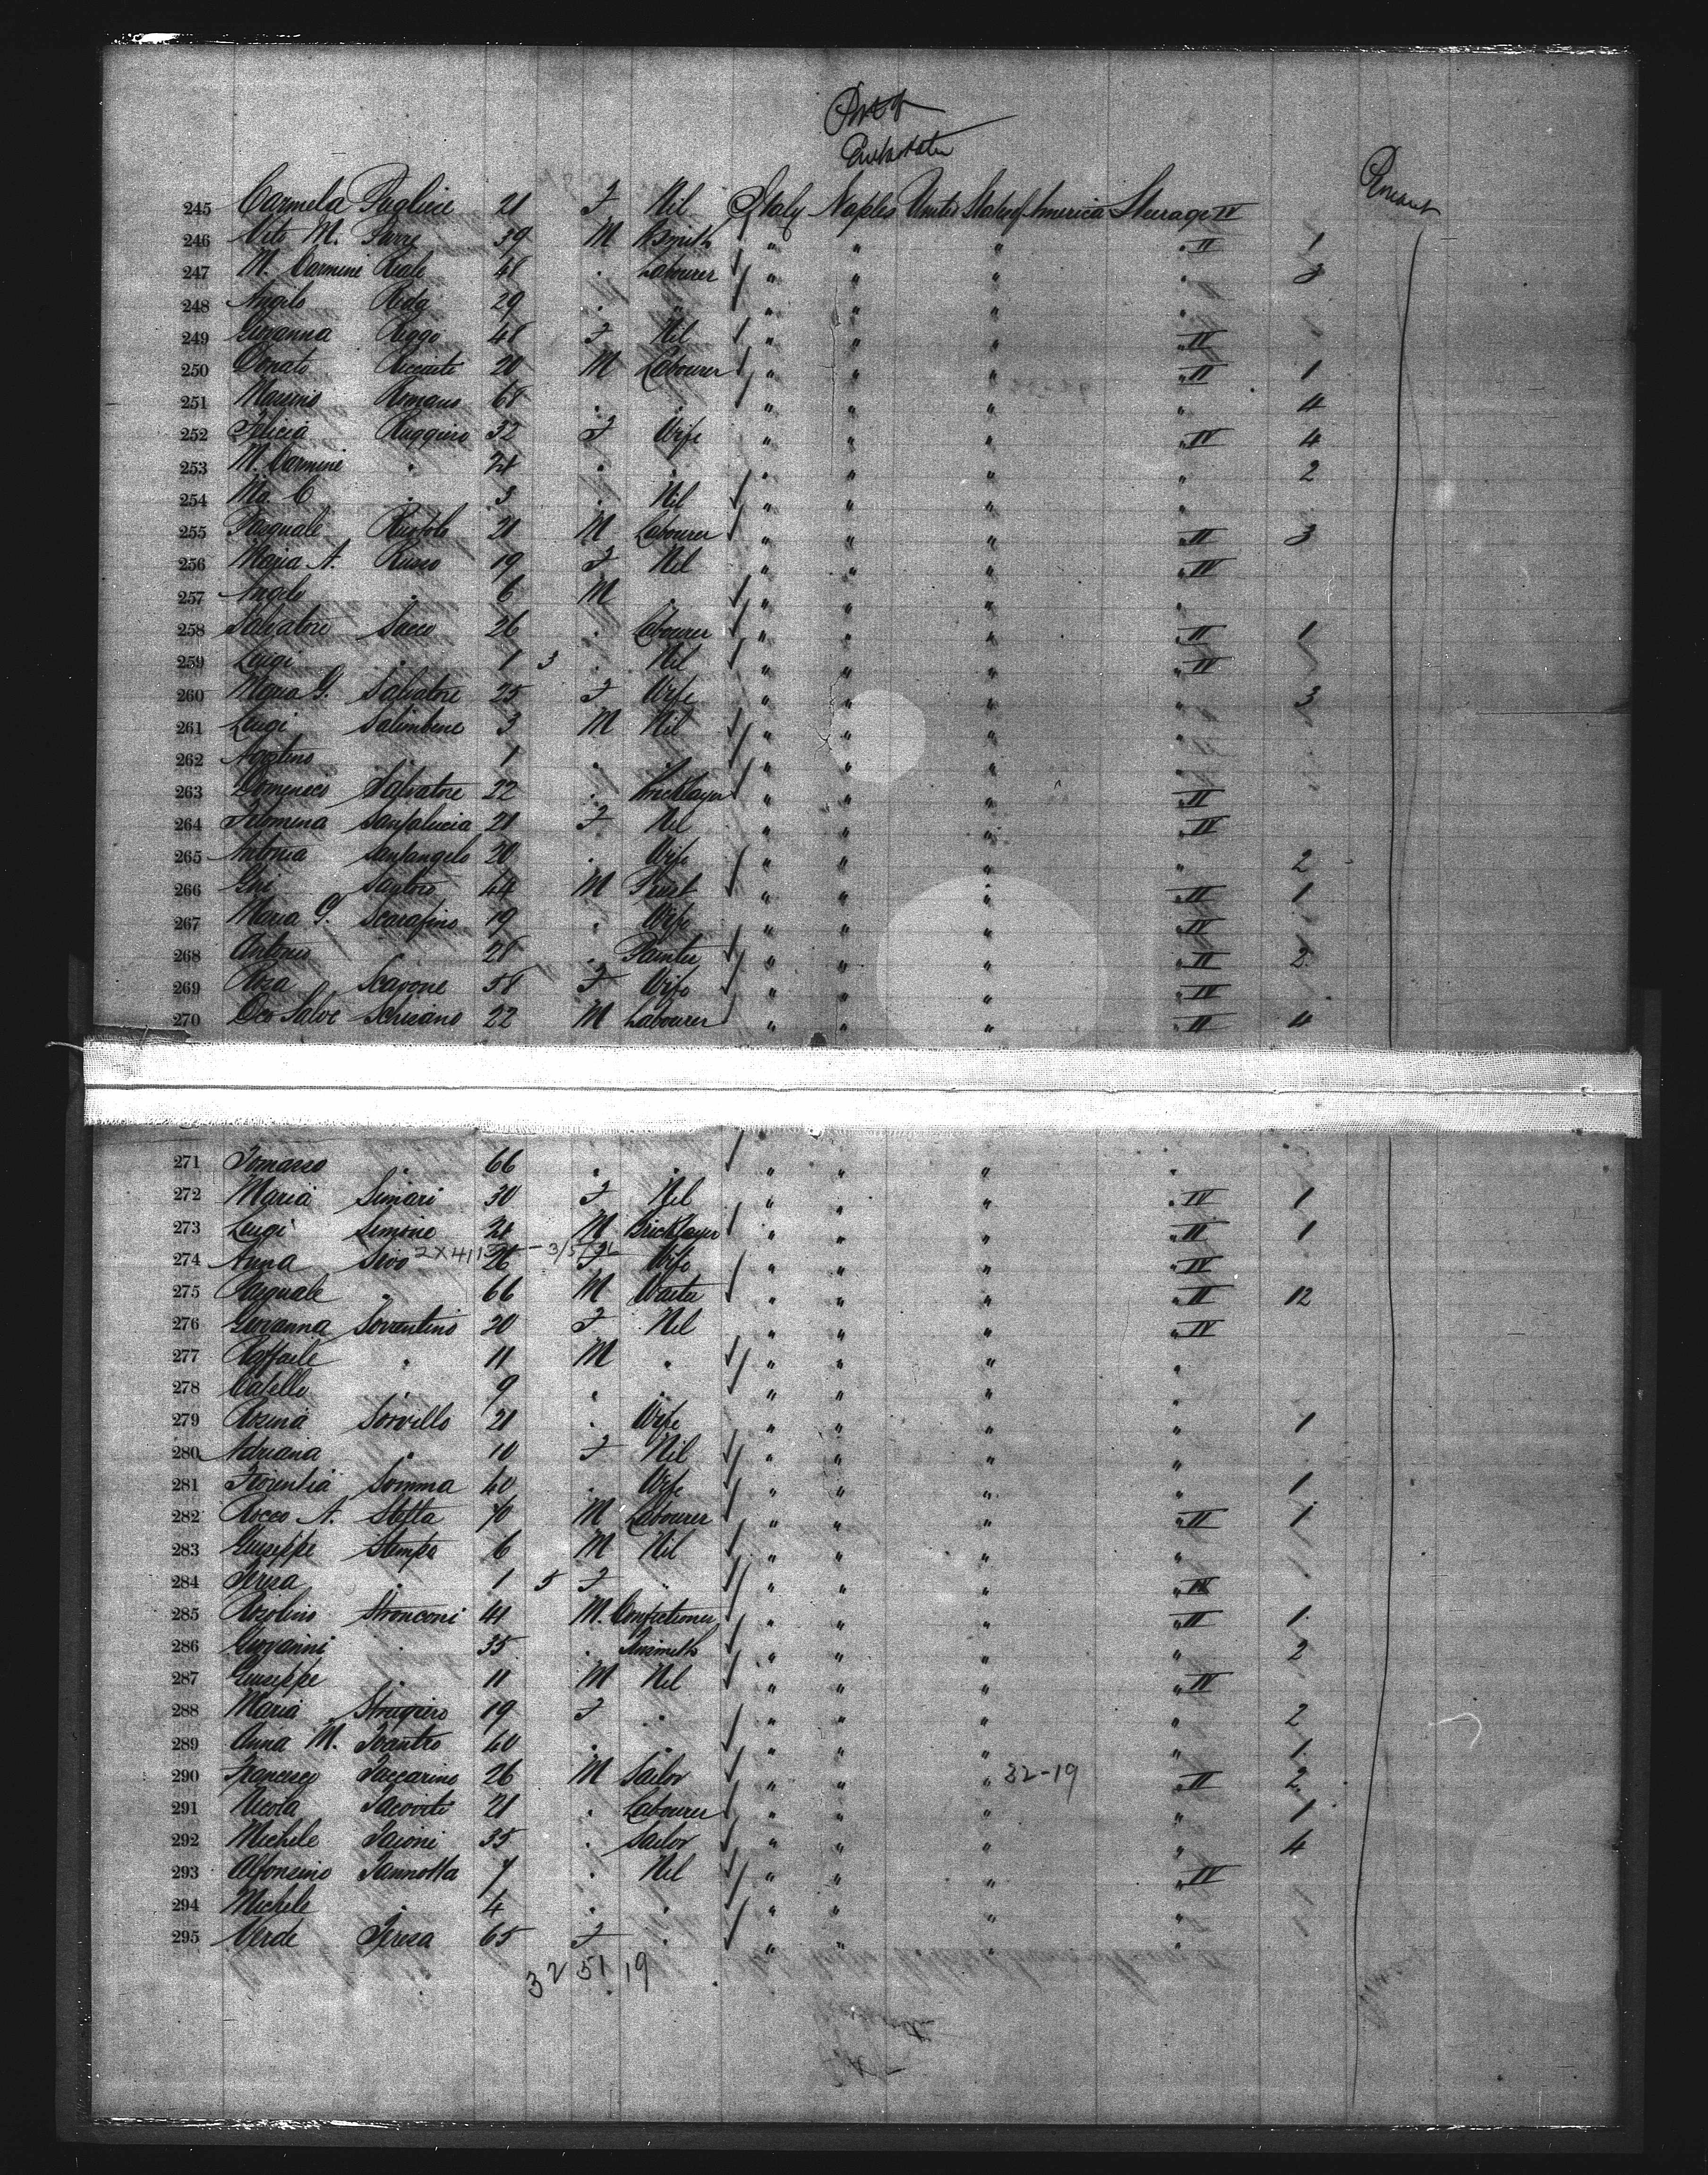 Port of
Embarkation
245 Carmela Pugliese 21 F Nil Italy Naples United States of America Steerage IV
246 Vito M. 39 M Bsmith " " " " II 1
247 M. Carmine Reale 48 . Labourer " " " " 3
248 Angelo Reda 29 . . " " " "
249 Giovanna Reggo 48 F Nil " " " " IV
250 Donato Ricciuti 20 M Labourer " " " " II 1
251 Romano 68 . . " " " " 4
252 Felicia Ruggiero 32 F Wife " " " " IV 4
253 M. Carmine . 24 . . " " " " 2
254 Ma. C . 3 . Nil " " " "
255 Pasquale 21 M Labourer " " " " II 3
256 Maria A. Russo 19 F Nil " " " " IV
257 Angelo . 6 M . " " " "
258 Salvatore Sacco 26 . Labourer " " " " II 1
259 Luigi . 1 3 . Nil " " " " IV
260 Maria G. Salvatore 25 F Wife " " " " 3
261 Luigi Salimbene 3 M Nil " " " "
262 Agostino . 1 . . " " " "
263 Domenico Salvatore 22 . Bricklayer " " " " II
264 Filomena Santalucia 21 F Nil " " " " IV
265 Antonia Santangelo 20 . Wife " " " " 2
266 Santoro 44 M Priest " " " " II 1
267 Maria G. Scarafino 19 . Wife " " " " IV
268 Antonio . 28 . Painter " " " " II 2
269 Rosa Scavone 58 F Wife " " " " IV
270 Salve Schisano 22 M Labourer " " " " II 4
271 Tomasso . 66 . . " " " "
272 Maria Simari 30 F Nil " " " " IV 1
273 Luigi Simone 24 M Bricklayer " " " " II 1
274 Anna Sivo 26 F Wife " " " " IV
275 Pasquale " 66 M Waiter " " " " II 12
276 Giovanna Sorrentino 20 F Nil " " " " IV
277 Raffaele . 11 M . " " " "
278 Catello . 9 . . " " " "
279 Rosina Sorvillo 21 . Wife " " " " 1
280 Adriana . 10 F Nil " " " "
281 Fiorentia Somma 40 . Wife " " " " 1
282 Rocco A. Stella 70 M Labourer " " " " II 1
283 Giuseppe Stempa 6 M Nil " " " "
284 Teresa . 1 5 F . " " " " IV
285 Rosolino Stronconi 41 M. Confectioner " " " " II 1
286 Giovanni . 35 . Tinsmith " " " " 2
287 Giuseppe . 11 M Nil " " " " IV
288 Maria 19 F . " " " " 2
289 Anna M. 40 . . " " " " 1
290 Francesco Taccarino 26 M Sailor " " " 32-19 " II 2
291 Nicola 21 . Labourer " " " " 1
292 Michele Taioni 35 . Sailor " " " " 4
293 Alfonsino Iannotta 7 . Nil " " " " IV
294 Michele . 4 . . " " " "
295 Verde Teresa 65 F . " " " "
32 51 19